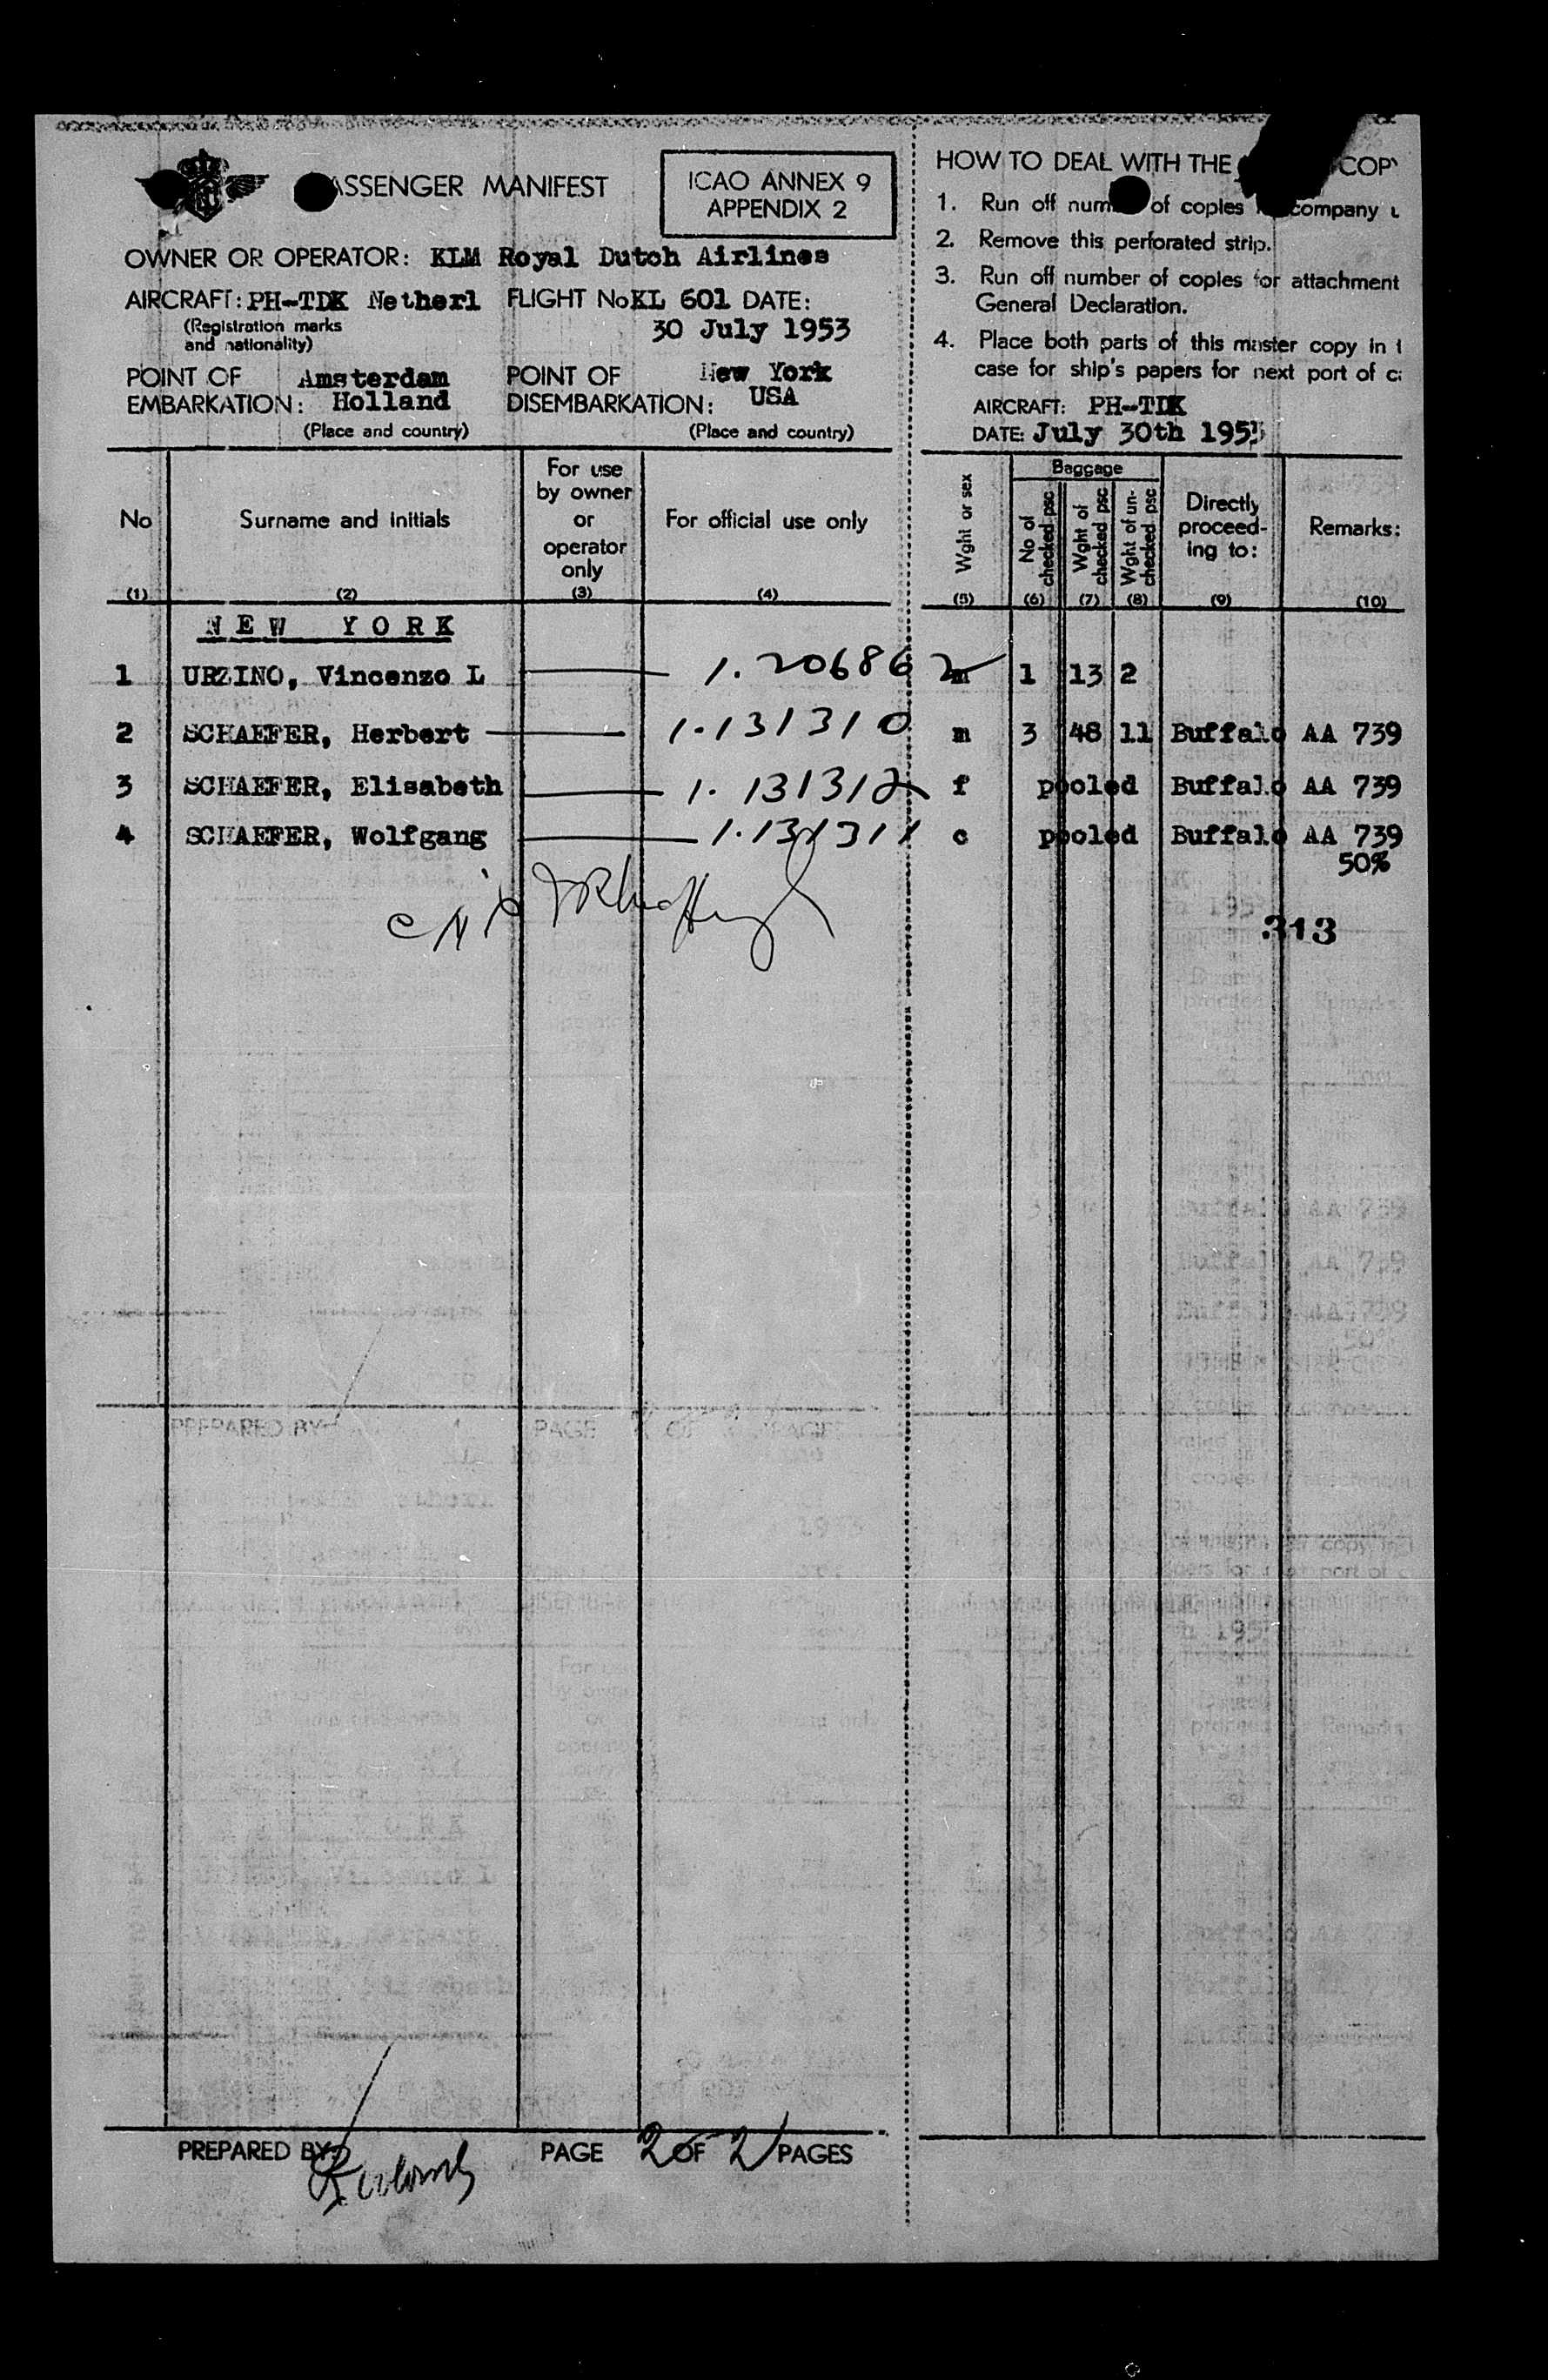 ASSENGER MANIFEST
ICAO ANNEX 9
APPENDIX 2
OWNER OR OPERATOR: KLM Royal Dutch Airlines
AIRCRAFT: PH-TDK Netherl FLIGHT No KL 601 DATE:
(Registration marks
and nationality)
30 July 1953
POINT OF Amsterdam POINT OF New York
EMBARKATION: Holland DISEMBARKATION: USA
(Place and country) (Place and country)
HOW TO DEAL WITH THE COPY
1. Run off num of copies company
2. Remove this perforated strip.
3. Run off number of copies for attachment
General Declaration.
4. Place both parts of this master copy in
case for ship's papers for next port of
AIRCRAFT: PH-TDK
DATE: July 30th 1953
No
(1)
Surname and initials
(2)
For use
by owner
or
operator
only
(3)
For official use only
(4)
Wght or sex
(5)
Baggage
No of
checked psc
(6)
Wght of
checked psc
(7)
Wght of un-
checked psc
(8)
Directly
proceed-
ing to:
(9)
Remarks:
(10)
NEW YORK
1 URZINO, Vincenzo L 1.20686 m 1 13 2
2 SCHAEFER, Herbert 1-131310 m 3 48 11 Buffalo AA 739
3 SCHAEFER, Elisabeth 1.131312 f pooled Buffalo AA 739
4 SCHAEFER, Wolfgang 1.131311 c pooled Buffalo AA 739
50%
313
PREPARED BY: PAGE 2 OF 2 PAGES